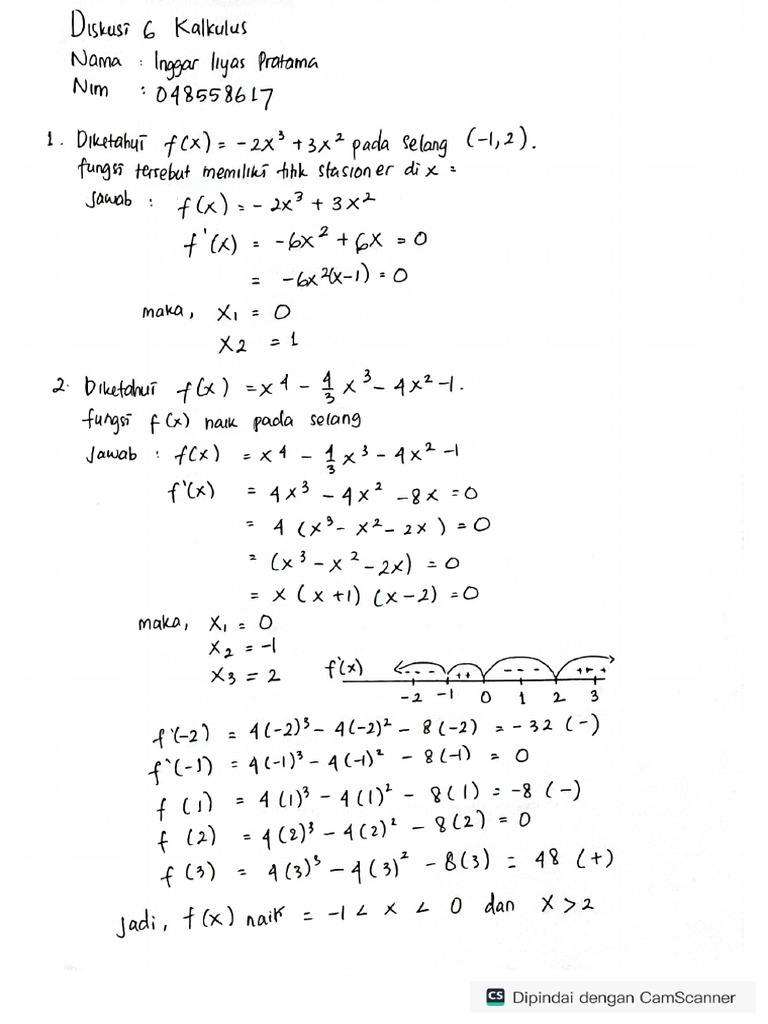 Diskusi 6 Kalkulus
Nama : Inggar Iiyas Pratama
Nim : 048558617
1. Diketahui f(x) = -2x³ + 3x² pada selang (-1,2).
fungsi tersebut memiliki titik stasioner di x =
Jawab : f(x) = -2x³ + 3x²
f'(x) = -6x² + 6x = 0
= -6x²(x-1) = 0
maka, x₁ = 0
x₂ = 1
2. Diketahui f(x) = x⁴ - 4/3 x³ - 4x² - 1.
fungsi f(x) naik pada selang
Jawab : f(x) = x⁴ - 4/3 x³ - 4x² - 1
f'(x) = 4x³ - 4x² - 8x = 0
= 4 (x³ - x² - 2x) = 0
= (x³ - x² - 2x) = 0
= x (x+1) (x-2) = 0
maka, x₁ = 0
x₂ = -1
x₃ = 2
f'(x) --- ++ --- +++
-2 -1 0 1 2 3
f'(-2) = 4(-2)³ - 4(-2)² - 8(-2) = -32 (-)
f'(-1) = 4(-1)³ - 4(-1)² - 8(-1) = 0
f (1) = 4(1)³ - 4(1)² - 8(1) = -8 (-)
f (2) = 4(2)³ - 4(2)² - 8(2) = 0
f (3) = 4(3)³ - 4(3)² - 8(3) = 48 (+)
Jadi, f(x) naik = -1 < x < 0 dan x > 2
CS Dipindai dengan CamScanner